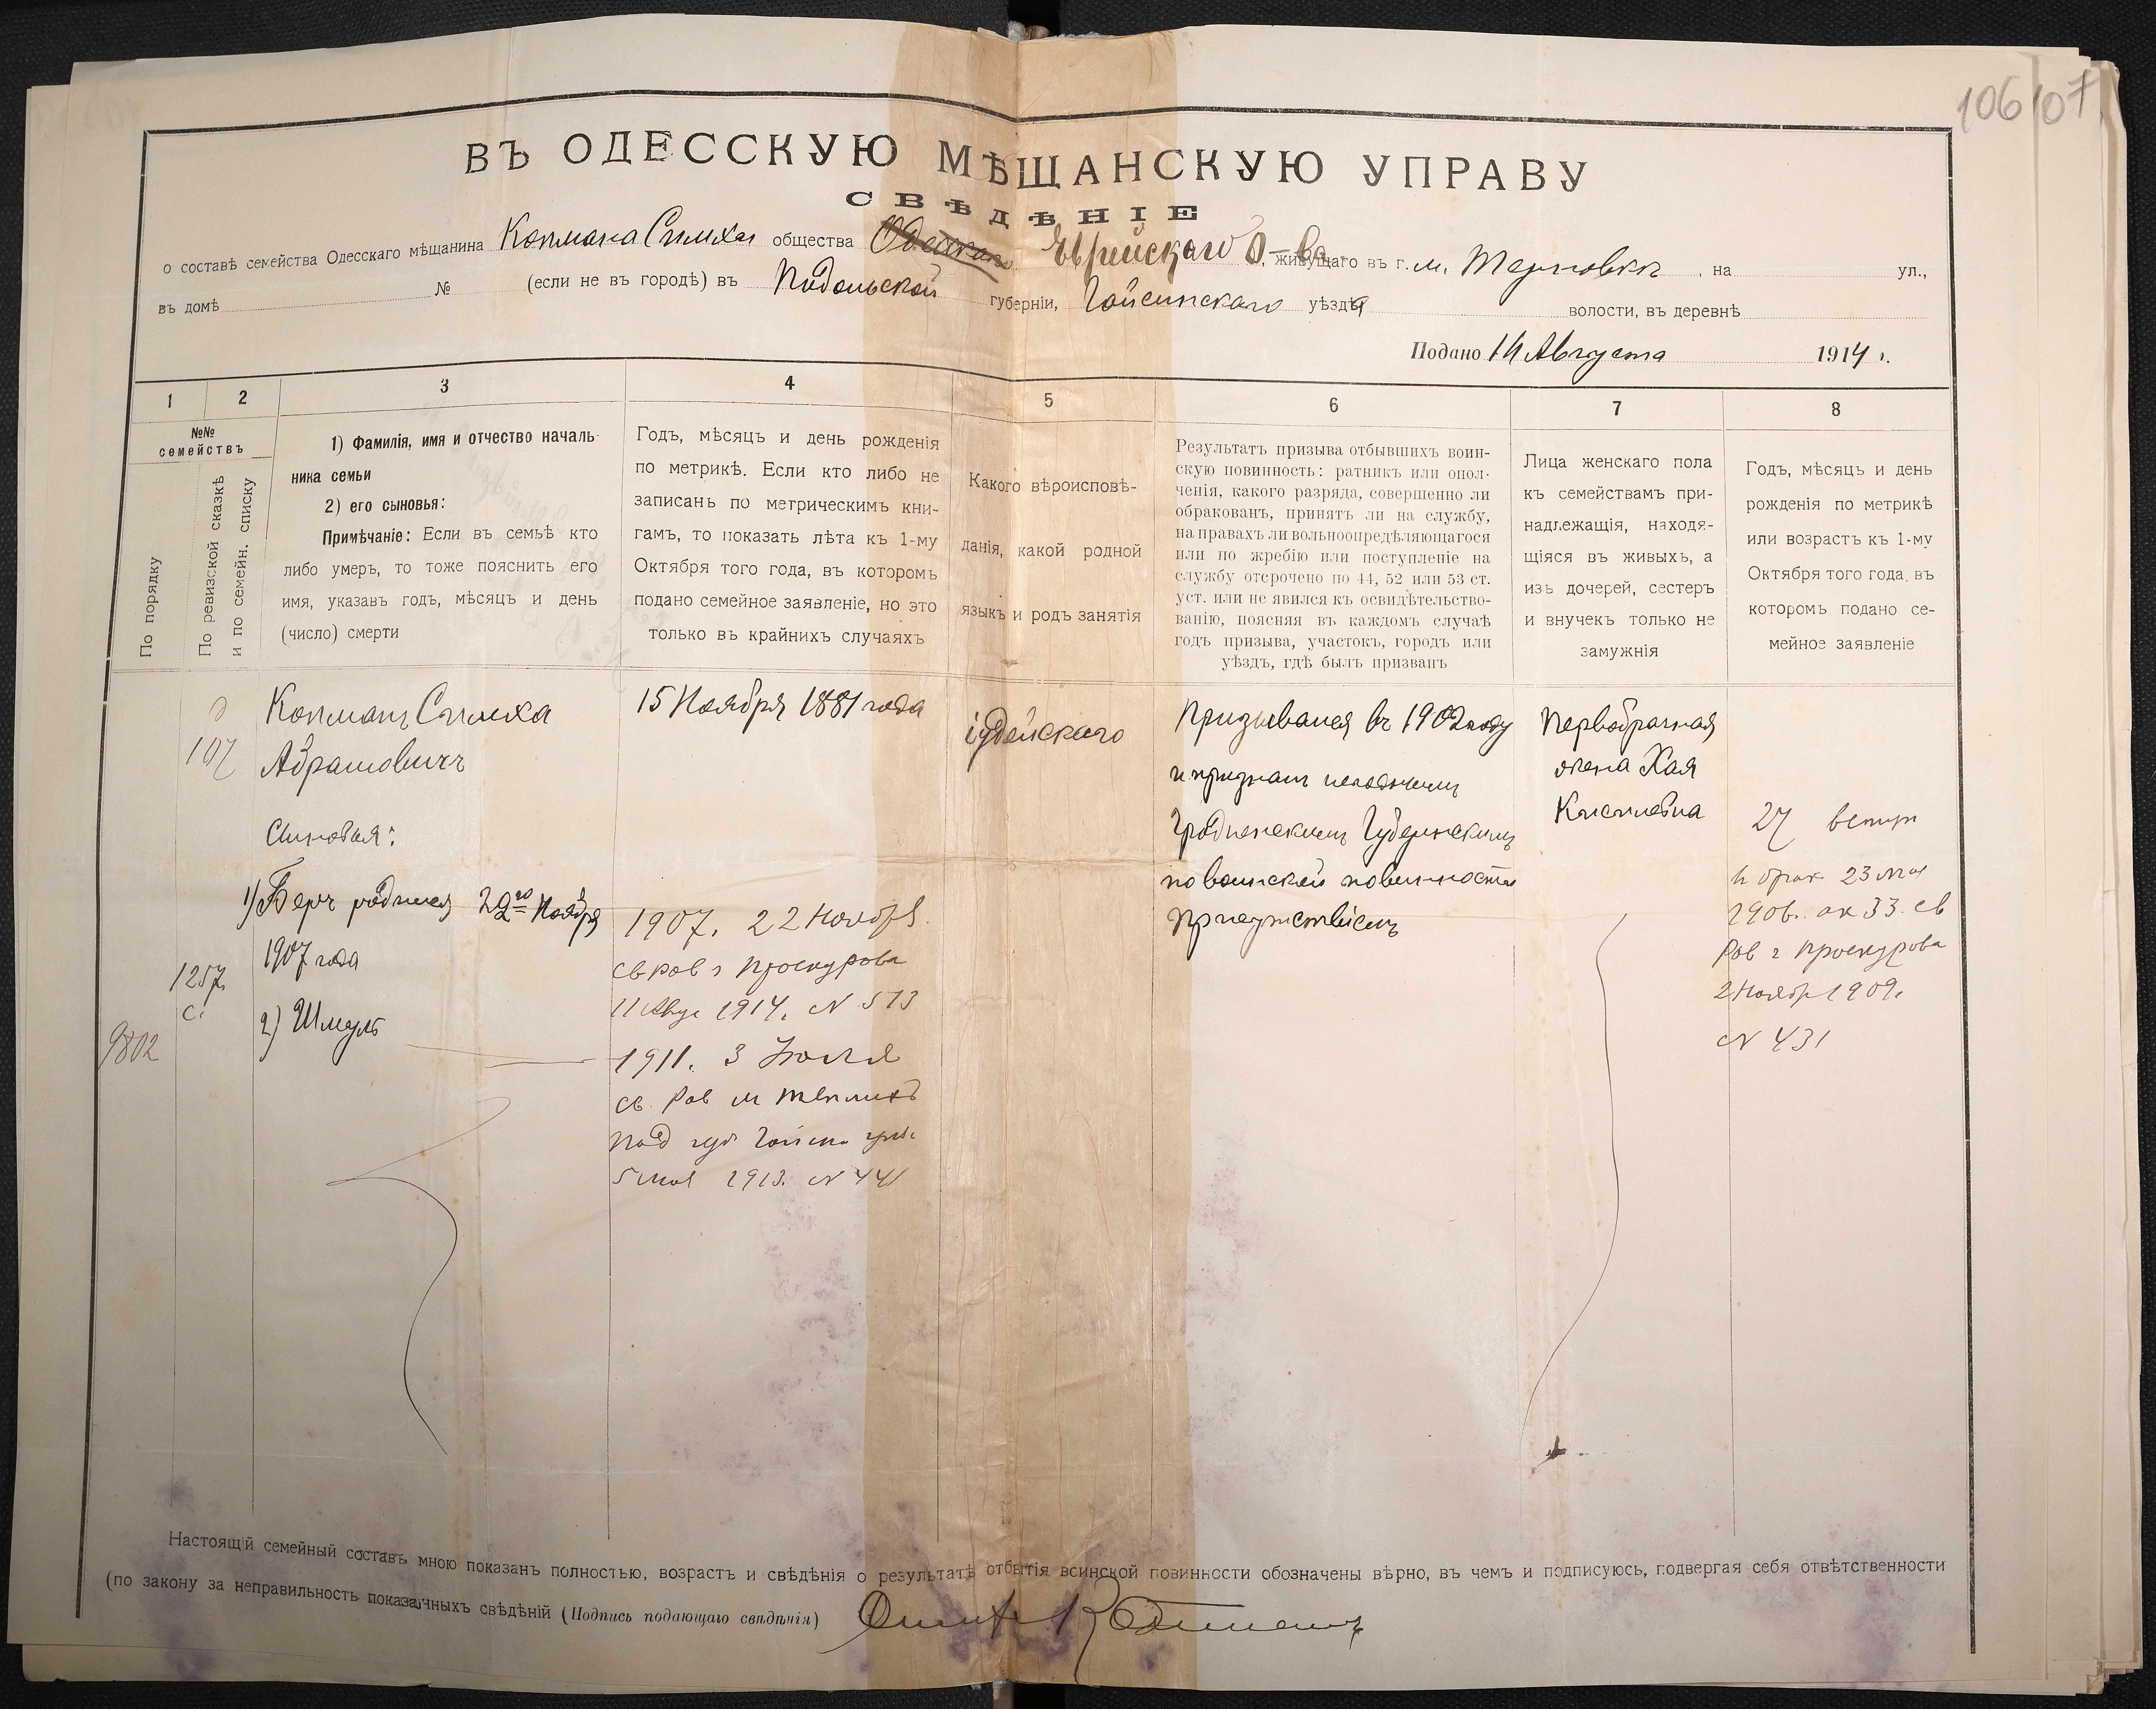 106 107
ВЪ ОДЕССКУЮ МѢЩАНСКУЮ УПРАВУ
СВѢДѢНІЕ
о составѣ семейства Одесскаго мѣщанина Копмана Симхи общества Одесскаго Еврейскаго О-ва, живущаго въ г. м. Терновкѣ, на ул.,
въ домѣ № (если не въ городѣ) въ Подольской губерніи, Гайсинскаго уѣзда волости, въ деревнѣ
Подано 14 Августа 1914 г.
1 2 3 4 5 6 7 8
№№ семействъ
По порядку
По ревизской сказкѣ
и по семейн. списку
1) Фамилія, имя и отчество началь-
ника семьи
2) его сыновья:
Примѣчаніе: Если въ семьѣ кто
либо умеръ, то тоже пояснить его
имя, указавъ годъ, мѣсяцъ и день
(число) смерти
Годъ, мѣсяцъ и день рожденія
по метрикѣ. Если кто либо не
записанъ по метрическимъ кни-
гамъ, то показать лѣта къ 1-му
Октября того года, въ которомъ
подано семейное заявленіе, но это
только въ крайнихъ случаяхъ
Какого вѣроисповѣ-
данія, какой родной
языкъ и родъ занятія
Результатъ призыва отбывшихъ воин-
скую повинность: ратникъ или опол-
ченія, какого разряда, совершенно ли
обракованъ, принятъ ли на службу,
на правахъ ли вольноопредѣляющагося
или по жребію или поступленіе на
службу отсрочено по 44, 52 или 53 ст.
уст. или не явился къ освидѣтельство-
ванію, поясняя въ каждомъ случаѣ
годъ призыва, участокъ, городъ или
уѣздъ, гдѣ былъ призванъ
Лица женскаго пола
къ семействамъ при-
надлежащія, находя-
щіяся въ живыхъ, а
изъ дочерей, сестеръ
и внучекъ только не
замужнія
Годъ, мѣсяцъ и день
рожденія по метрикѣ
или возрастъ къ 1-му
Октября того года, въ
которомъ подано се-
мейное заявленіе
107
1257
с.
9802
Копманъ Симха
Абрамовичъ
Сыновья:
1) Беръ родился 22го Ноября
1907 года
2) Шмуль
15 Ноября 1881 года
1907. 22 Ноября.
св рав г Проскурова
11 Авгу 1914. N 513
1911. 3 Іюля
св. Рав м Тепликъ
Под губ Гайсин уѣз.
5 мая 1913. N 441
іудейскаго
Призывался въ 1902 году
и признанъ негоднымъ
Гродненскимъ Губернскимъ
по воинской повинности
Присутствіемъ
Первобрачная
жена Хая
27 вступ
в брак 23 мая
1906. ак 33. св
Рав г Проскурова
2 Ноябр 1909.
N 431
Настоящій семейный составъ мною показанъ полностью, возрастъ и свѣдѣнія о результатѣ отбытія воинской повинности обозначены вѣрно, въ чемъ и подписуюсь, подвергая себя отвѣтственности
(по закону за неправильность показанныхъ свѣдѣній (Подпись подающаго свѣдѣнія)